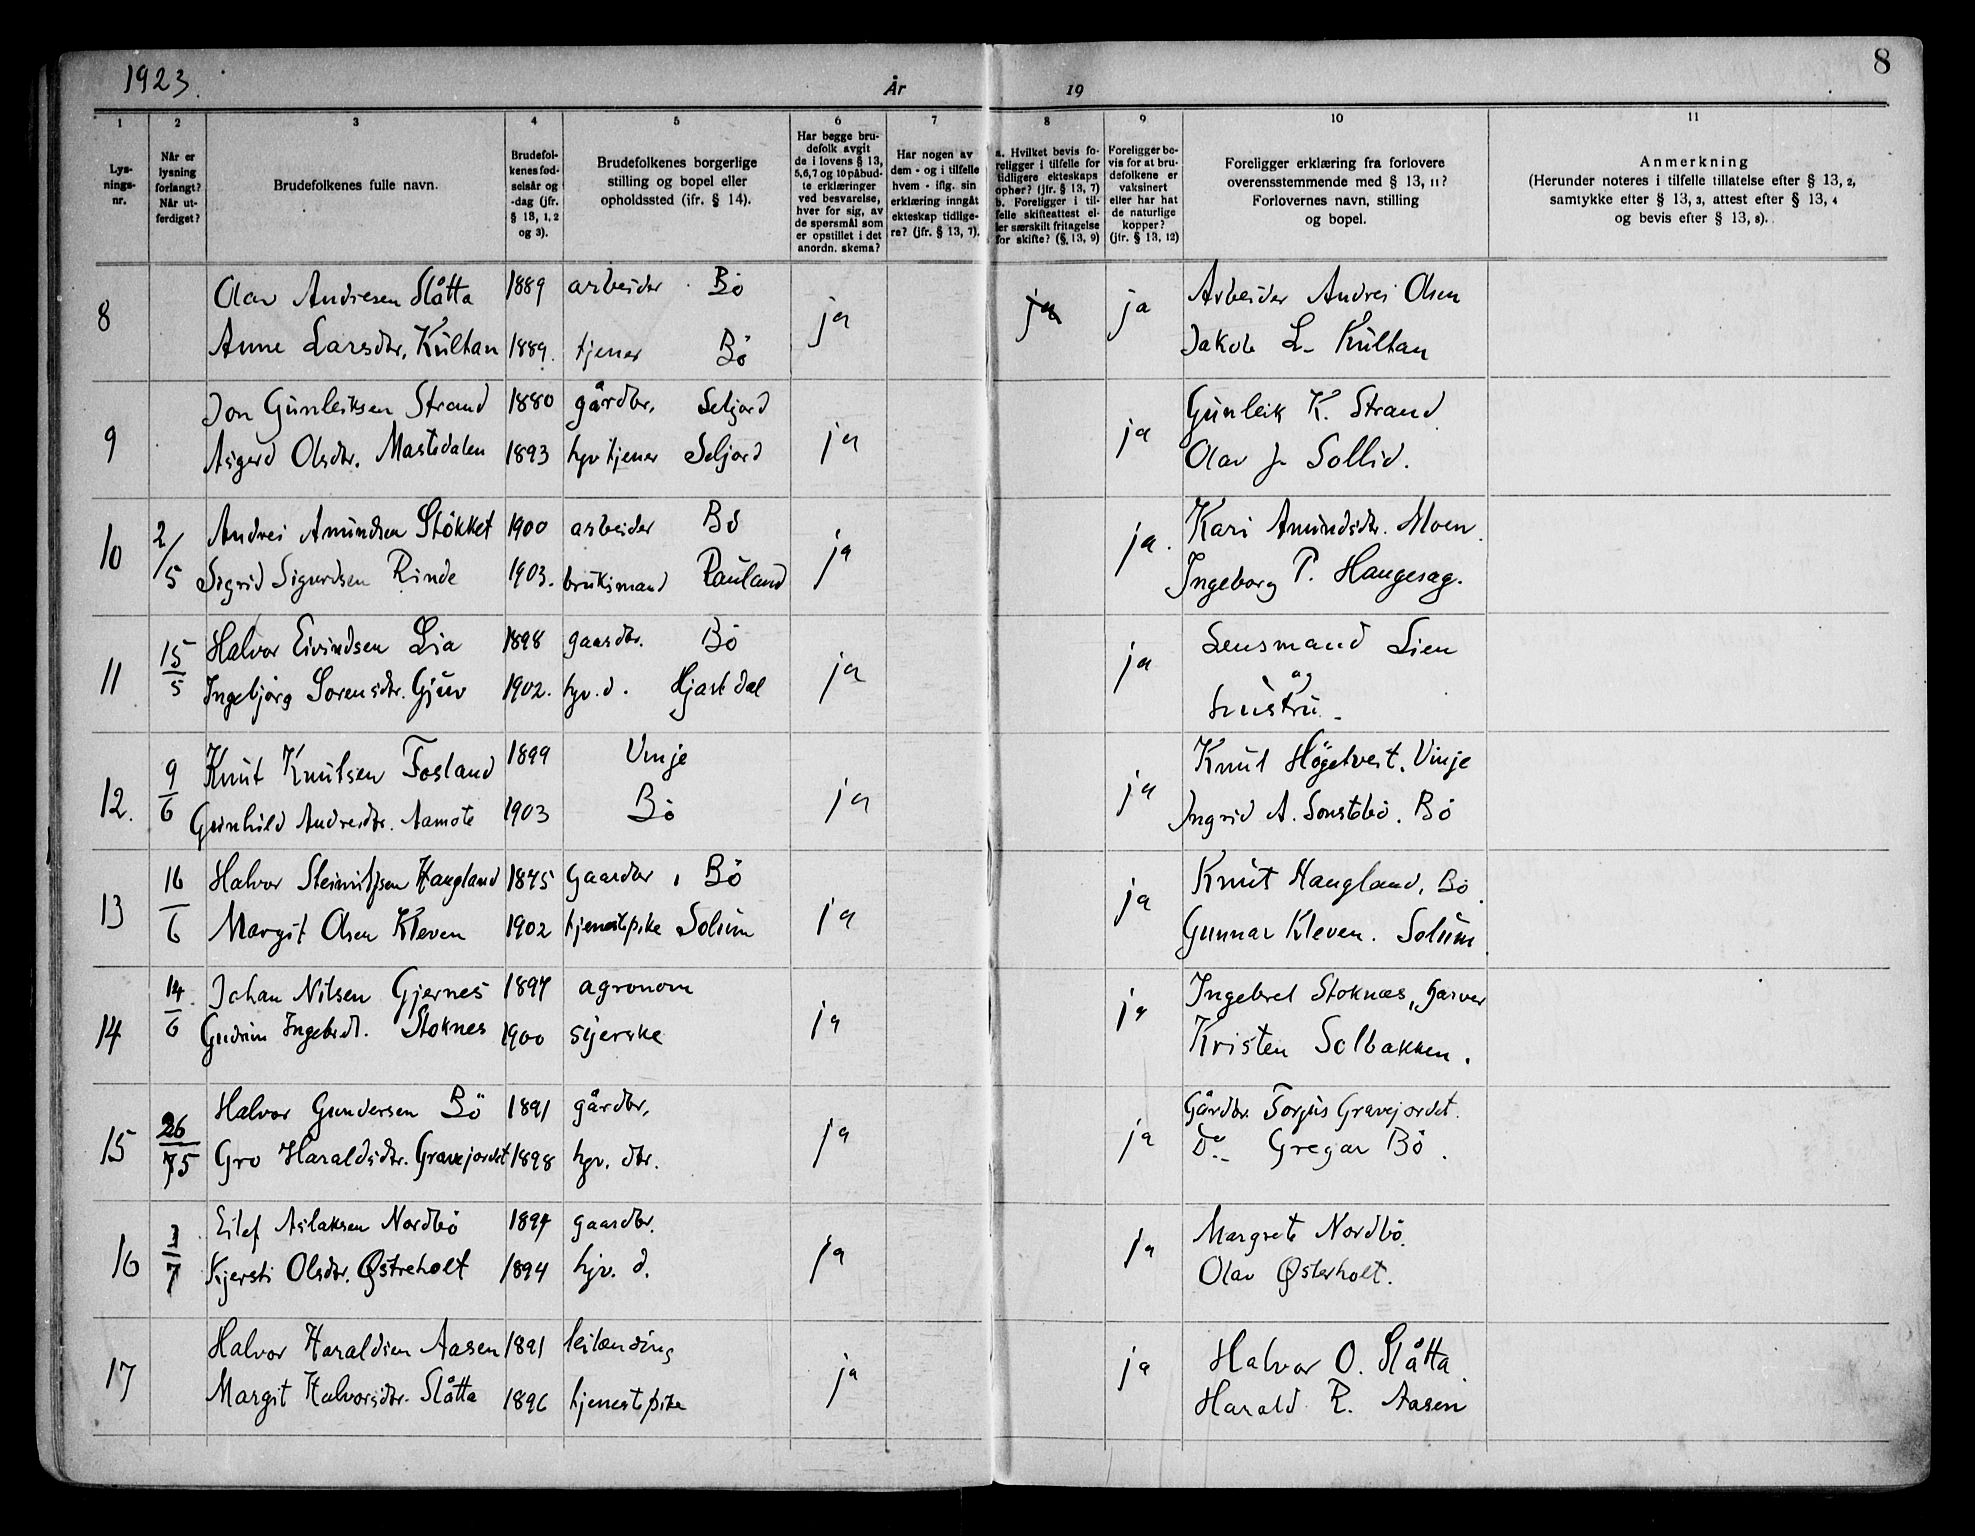 1923.
År
19
8
1
2
3
4
5
6
7
8
9
10
11
Lys-
nings-
nr.
Når er
lysning
forlangt?
Når ut-
ferdiget?
Brudefolkenes fulle navn.
Brudefol-
kenes fød-
selsår og
-dag (jfr.
§ 13, 1, 2
og 3).
Brudefolkenes borgerlige
stilling og bopel eller
opholdssted (jfr. § 14).
Har begge bru-
defolk avgit
de i lovens § 13,
5,6,7 og 10 påbud-
te erklæringer
ved besvarelse,
hver for sig, av
de spørsmål som
er opstillet i det
anordn. skema?
Har nogen av
dem - og i tilfelle
hvem - iflg. sin
erklæring inngåt
ekteskap tidlige-
re? (jfr. § 13, 7).
a. Hvilket bevis fo-
religger i tilfelle for
tidligere ekteskaps
ophør? (jfr. § 13, 7)
b. Foreligger i til-
felle skifteattest el-
ler særskilt fritagelse
for skifte? (§ 13, 9)
Foreligger be-
vis for at bru-
defolkene er
vaksinert
eller har hat
de naturlige
kopper?
(jfr. § 13, 12)
Foreligger erklæring fra forlovere
overensstemmende med § 13, 11?
Forlovernes navn, stilling
og bopel.
Anmerkning
(Herunder noteres i tilfelle tillatelse efter § 13, 2,
samtykke efter § 13, 3, attest efter § 13, 4
og bevis efter § 13, 8).
8 Olav Andresen Slåtta 1889 arbeider Bö ja ja ja Arbeider Andres Olsen
Anne Larsdtr. Kultan 1889. tjener Bö Jakob L. Kultan
9 Jon Gunleiksen Strand 1880 gårdbr. Seljord ja ja Gunleik K. Strand
Asgerd Olsdtr. Mastedalen 1893 hjv tjener Seljord Olav J. Sollid.
10 2/5 Andres Amundsen Stökket 1900 arbeider Bö ja ja. Kari Amundsdtr. Moen
Sigrid Sigurdsen Rinde 1903. bruksmand Rauland Ingeborg P. Haugesag.
11 15/5 Halvor Eivindsen Lia 1898 gaardbr. Bö ja ja Lensmand Lien
Ingebjørg Sorensdtr. Gjuv 1902. hjv. d. Hjartdal og
hustru.
12. 9/6 Knut Knutsen Fosland 1899 Vinje ja ja Knut Högetveit. Vinje
Gunhild Andresdtr. Aamote 1903 Bö Ingrid A. Sonstebö. Bö
13 16/6 Halvor Haugland 1875 Gaardbr, Bö ja ja Knut Haugland, Bö
Margit Olsen Kleven 1902 tjenestpike Solum Gunnar Kleven. Solum
14 14/6 Johan Nilsen Gjernes 1897 agronom ja ja Ingebret Stoknæs, Garver
Gudrun Ingebrdt. Stoknes 1900 syerske Kristen Solbakken.
15 26/5 Halvor Gundersen Bö 1891 gårdbr. ja ja Gårdbr. Torjus Gravejordet.
Gro Haraldsdtr. Gravejordet 1898 hjv. dtr. Do Gregar Bö.
16 3/7 Eilef Aslaksen Nordbö 1894 gaardbr. ja ja Margrete Nordbö.
Kjersti Olsdtr. Østreholt 1894 hjv. d. Olav Østerholt.
17 Halvor Haraldsen Aasen 1891 leilænding ja ja Halvor O. Slåtta
Margit Halvorsdtr. Slåtta 1896 tjenestpike Harald R. Aasen